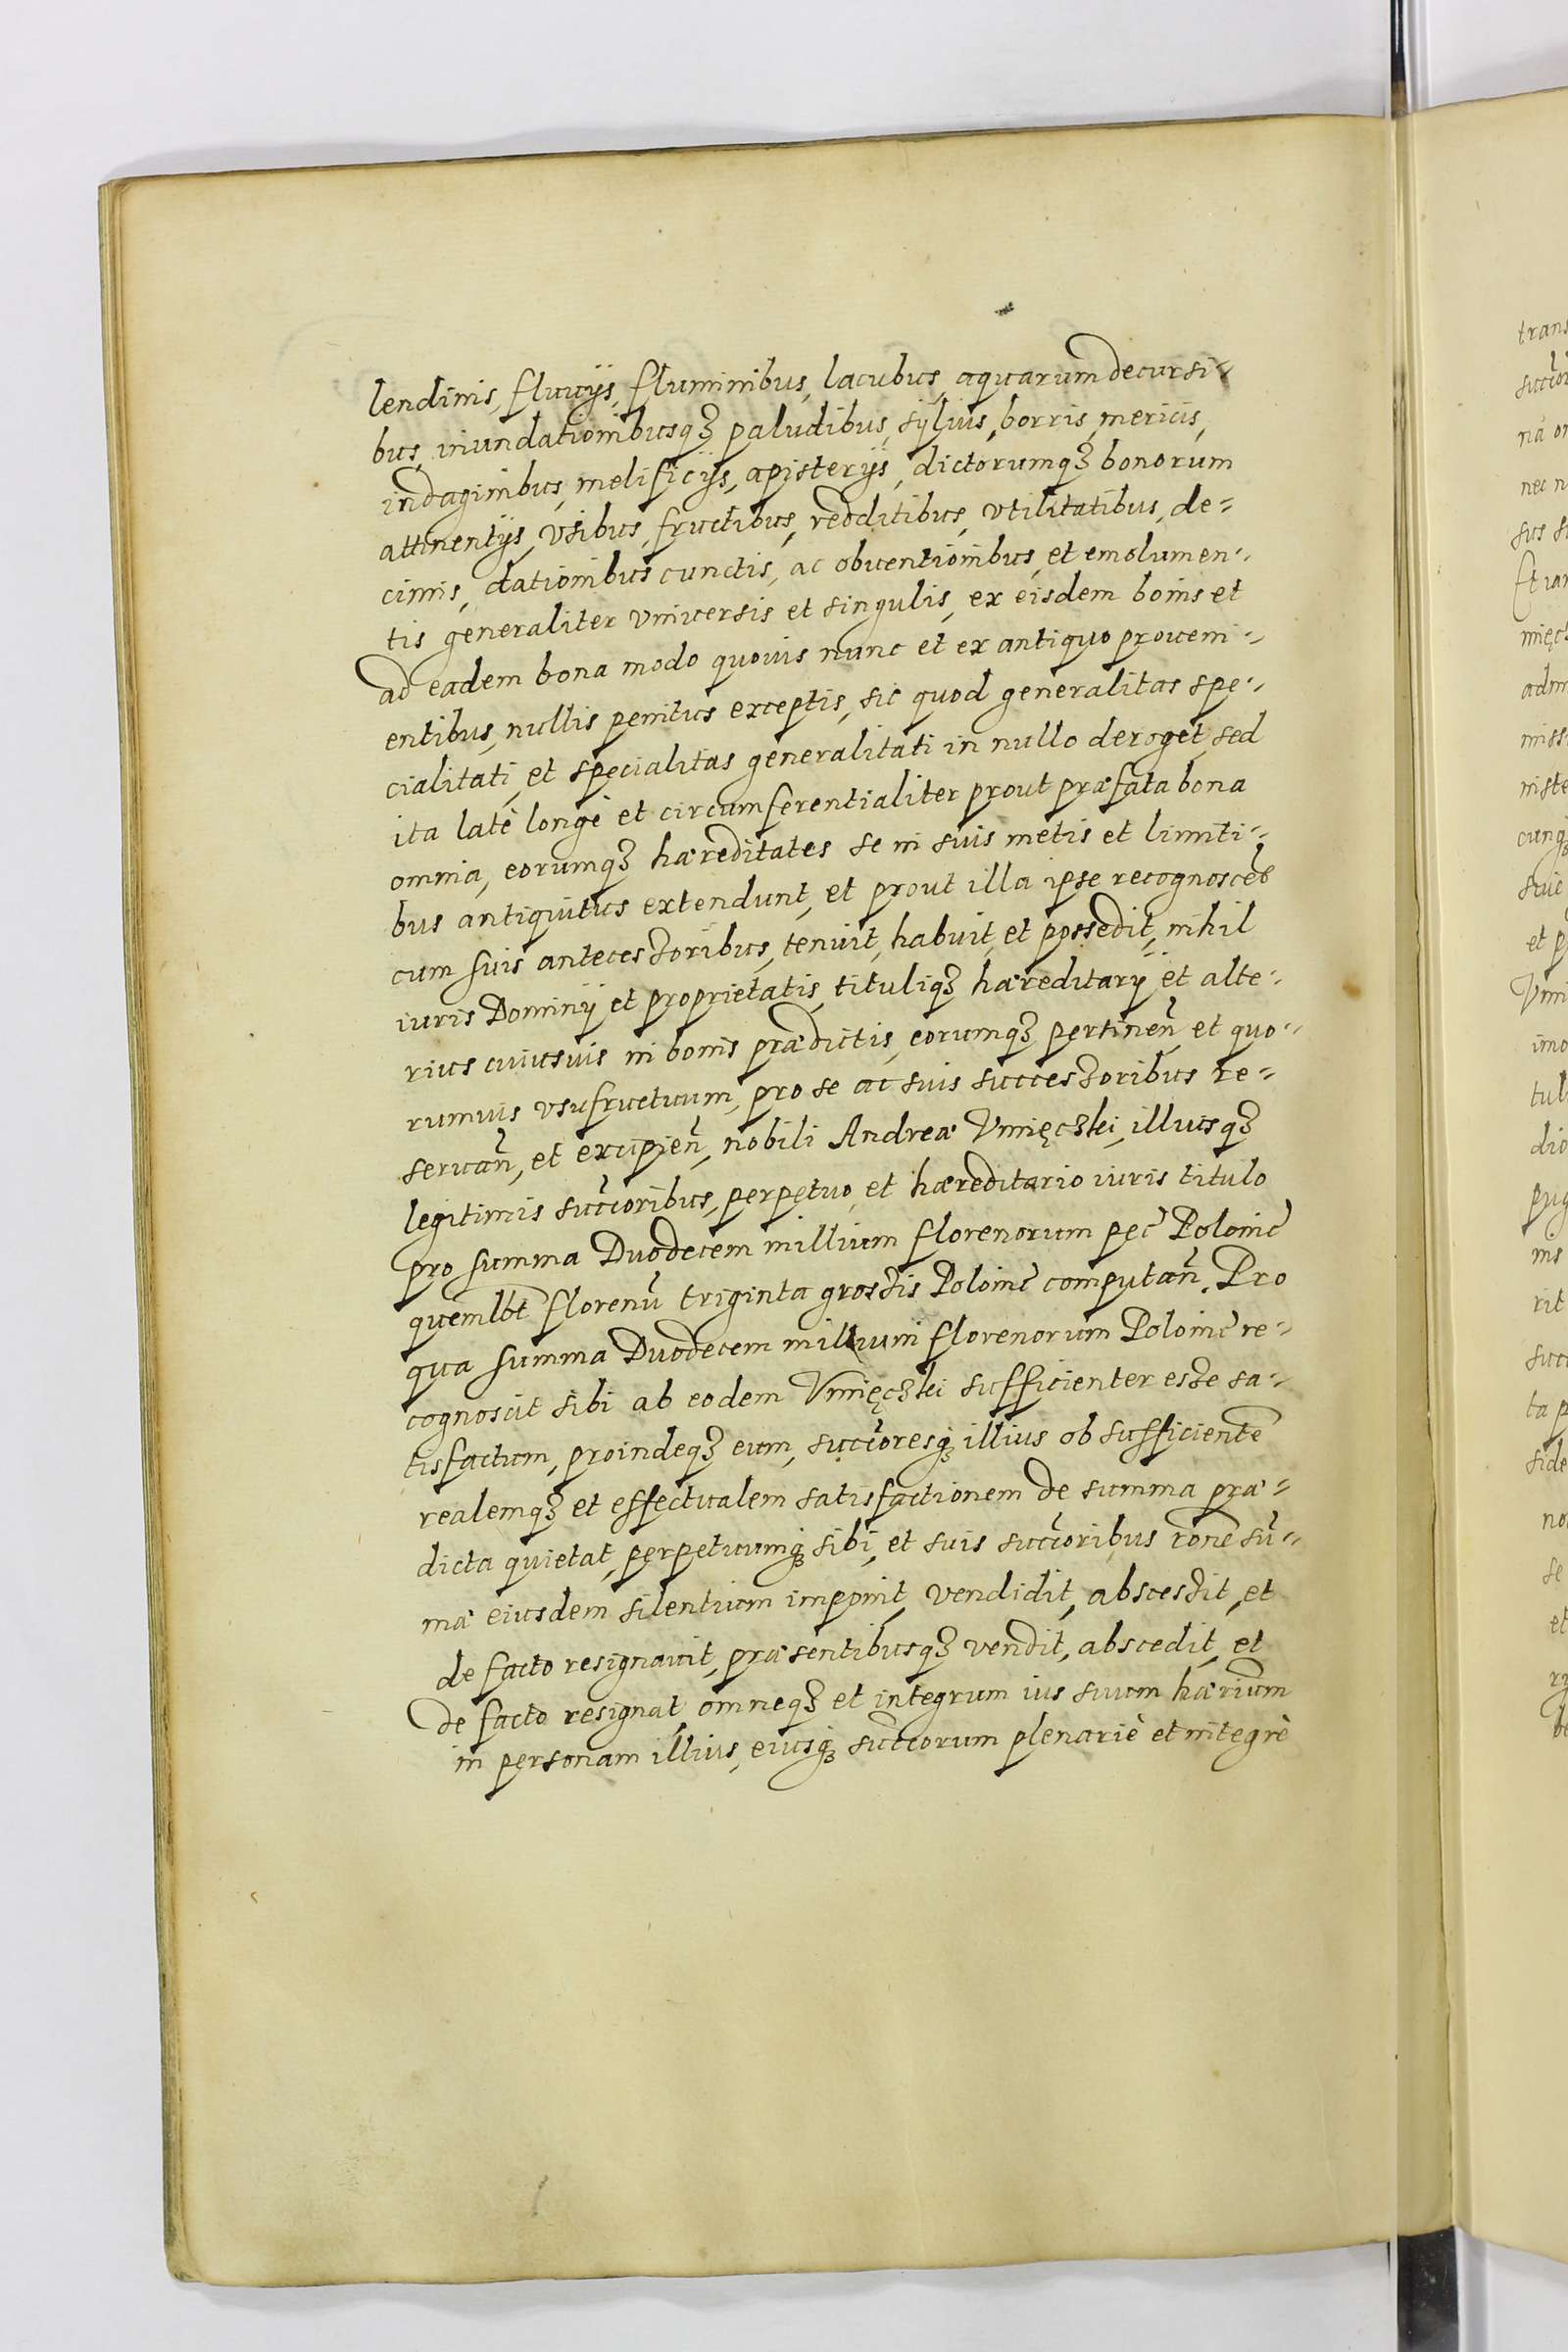 lendinis, fluuijs, fluminibus, lacubus, aquarum decursi-
bus, inundationibusqꝫ paludibus, syluis, borris, mericis,
indaginibus, melificijs, apisterijs, dictorumqꝫ bonorum
attinentijs, vsibus, fructibus, redditibus, vtilitatibus, de-
cimis, dationibus cunctis, ac obuentionibus, et emolumen-
tis generaliter vniuersis et singulis, ex eisdem bonis et
ad eadem bona modo quouis nunc et ex antiquo proueni-
entibus, nullis penitus exceptis, sic quod generalitas spe-
cialitati, et specialitas generalitati in nullo deroget, sed
ita latè longè et circumferentialiter prout præfata bona
omnia, eorumqꝫ hæreditates se in suis metis et limiti-
bus antiquitus extendunt, et prout illa ipse recognosceñ
cum suis antecessoribus, tenuit, habuit, et possedit, nihil
iuris Dominij et proprietatis, tituliqꝫ hæreditarij et alte-
rius cuiusuis in bonis prædictis, eorumqꝫ pertineñ et quo-
rumuis vsufructuum, pro se ac suis successoribus re-
seruañ, et excipieñ, nobili Andreæ Vmięczki, illiusqꝫ
legitimis succ̃oribus, perpetuo, et hæreditario iuris titulo
pro summa Duodecem millium florenorum pec̃ Polonic̃
quemlbt̃ florenũ triginta grossis Polonic̃ computañ. Pro
qua summa Duodecem millium florenorum Polonic̃ re-
cognoscit sibi ab eodem Vmięczki sufficienter esse sa-
tisfactum, proindeqꝫ eum, succ̃oresqꝫ illius ob sufficientẽ
realemqꝫ et effectualem satisfactionem de summa præ-
dicta quietat, perpetuumqꝫ sibi, et suis succ̃oribus rõne sũ-
mæ eiusdem silentium imponit, vendidit, abscessit, et
de facto resignauit, præsentibusqꝫ vendit, abscedit, et
de facto resignat omneqꝫ et integrum ius suum hærium̃
in personam illius, eiusqꝫ succ̃orum plenariè et integrè

trans
succ̃or
na o
nec n
sus s
Et ia
mięcz
adm
miss
niste
cunq
suie
et p
Vmi
imo
tul
dic
pug
ms
rit
succ
ta p
side
no
se
et